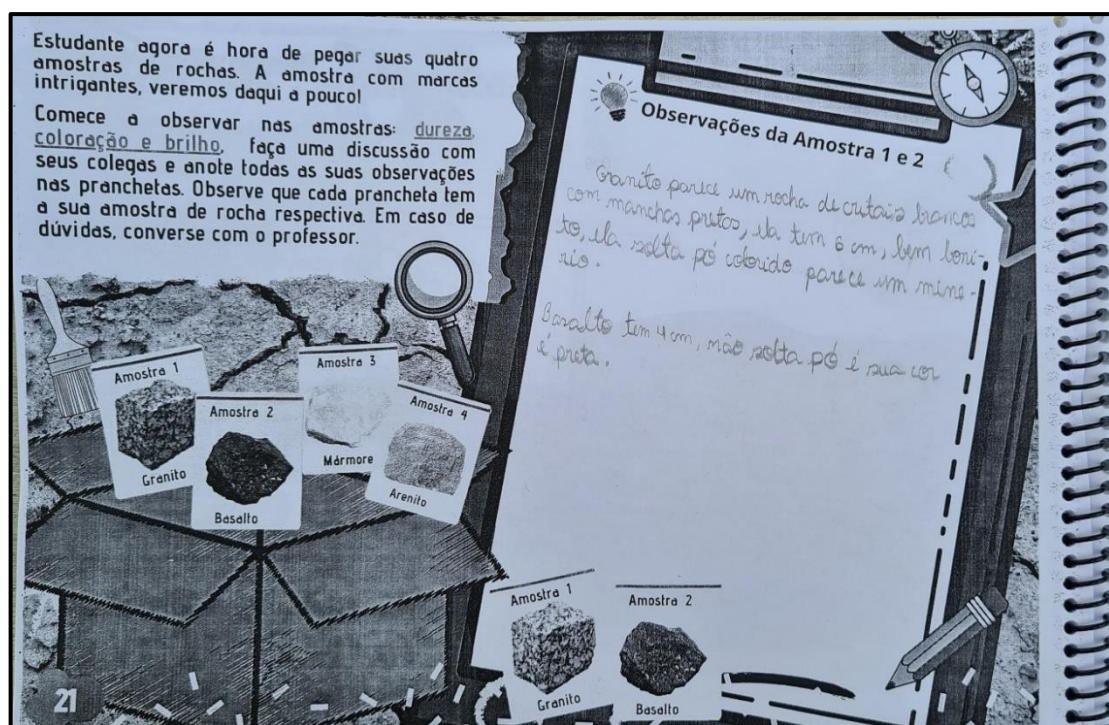 Estudante agora é hora de pegar suas quatro
amostras de rochas. A amostra com marcas
intrigantes, veremos daqui a pouco!
Comece a observar nas amostras: dureza,
coloração e brilho, faça uma discussão com
seus colegas e anote todas as suas observações
nas pranchetas. Observe que cada prancheta tem
a sua amostra de rocha respectiva. Em caso de
dúvidas, converse com o professor.
Amostra 1
Granito
Amostra 2
Basalto
Amostra 3
Mármore
Amostra 4
Arenito
21
Observações da Amostra 1 e 2
Granito parece um rocha de cutais brancos
com manchas pretos, ela tem 6 cm, bem boni-
to, ela solta pó colorido parece um mine-
rio.
Basalto tem 4 cm, não solta pó é sua cor
é preta.
Amostra 1
Granito
Amostra 2
Basalto